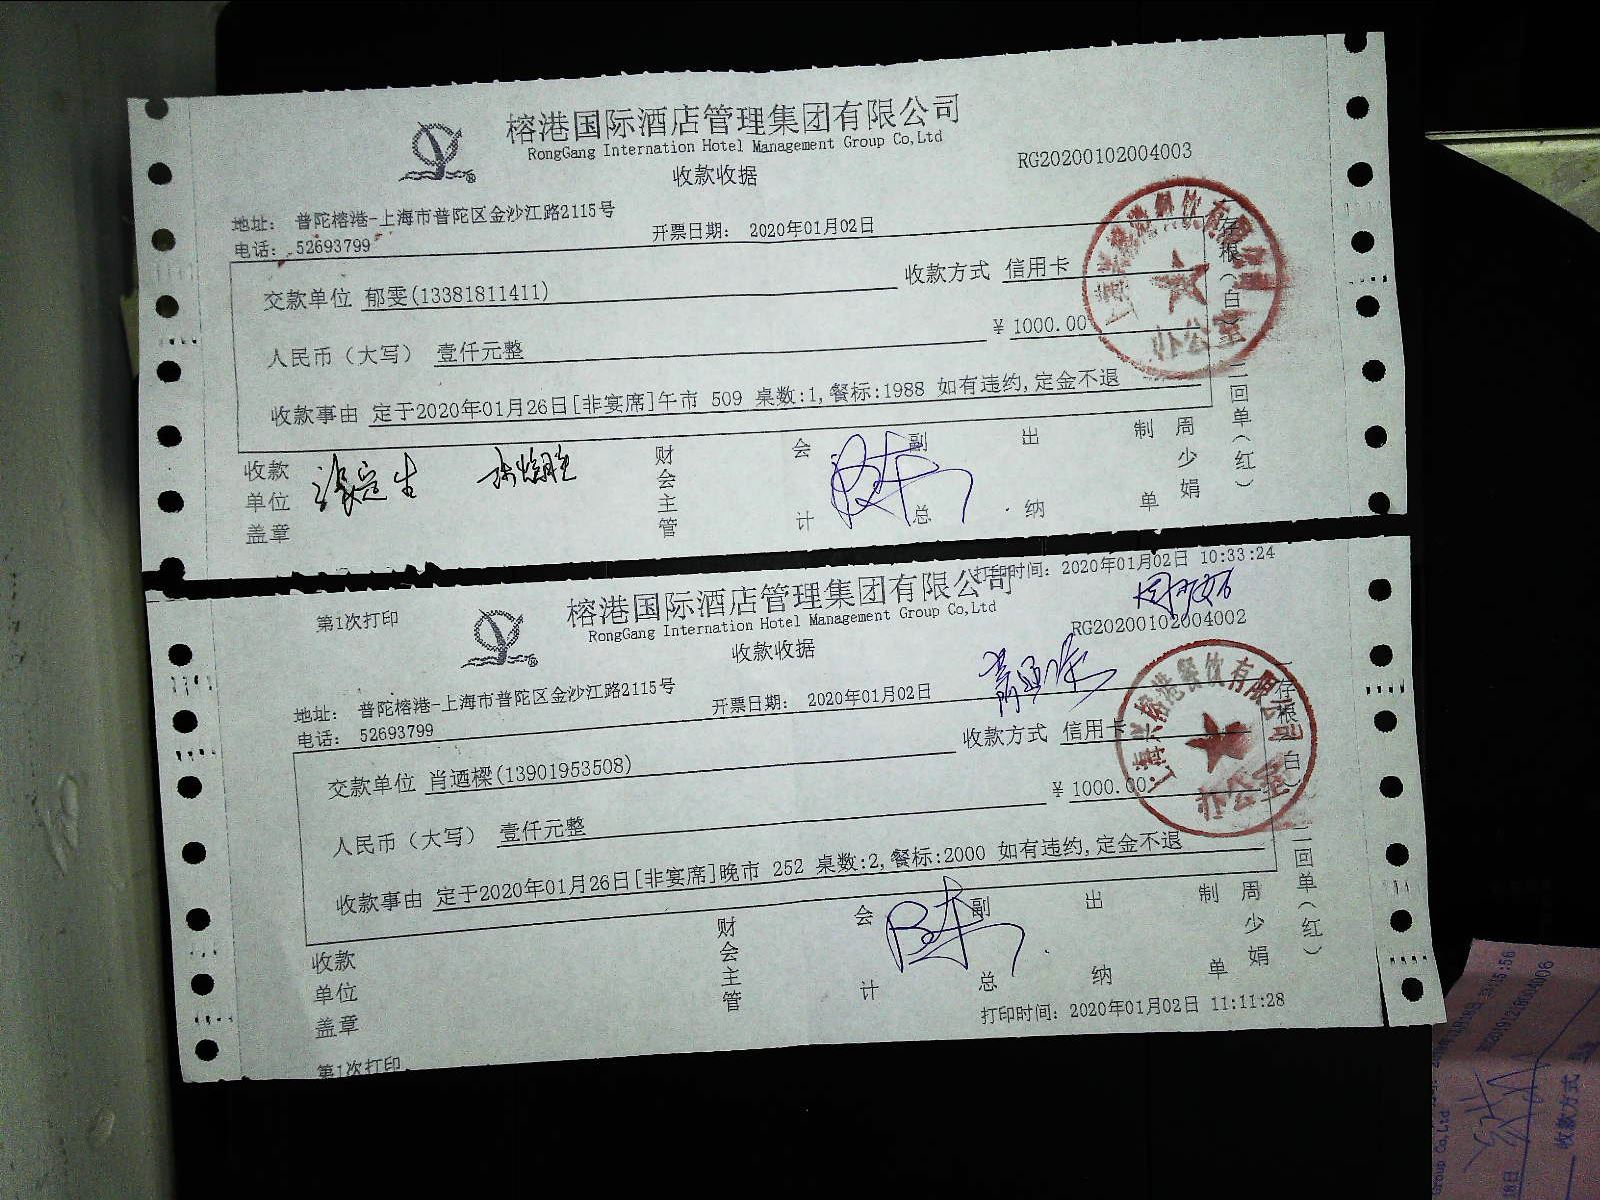 榕港国际酒店管理集团有限公司
RongGang Internation Hotel Management Group Co,Ltd
收款收据
RG20200102004003
地址: 普陀榕港-上海市普陀区金沙江路2115号
电话: 52693799
开票日期: 2020年01月02日
交款单位 郁雯(13381811411) 收款方式 信用卡
人民币（大写） 壹仟元整 ¥ 1000.00
收款事由 定于2020年01月26日[非宴席]午市 509 桌数:1,餐标:1988 如有违约,定金不退
收款单位盖章 财会主管 会计 副总 出纳 制单 周少娟
一存根(白) 二回单(红)
上海兴榕港餐饮有限公司
办公室
第1次打印
打印时间: 2020年01月02日 10:33:24
榕港国际酒店管理集团有限公司
RongGang Internation Hotel Management Group Co,Ltd
收款收据
RG20200102004002
地址: 普陀榕港-上海市普陀区金沙江路2115号
电话: 52693799
开票日期: 2020年01月02日
交款单位 肖迺樑(13901953508) 收款方式 信用卡
人民币（大写） 壹仟元整 ¥ 1000.00
收款事由 定于2020年01月26日[非宴席]晚市 252 桌数:2,餐标:2000 如有违约,定金不退
收款单位盖章 财会主管 会计 副总 出纳 制单 周少娟
一存根(白) 二回单(红)
上海兴榕港餐饮有限公司
办公室
打印时间: 2020年01月02日 11:11:28
第1次打印
roup Co,Ltd
收款方式